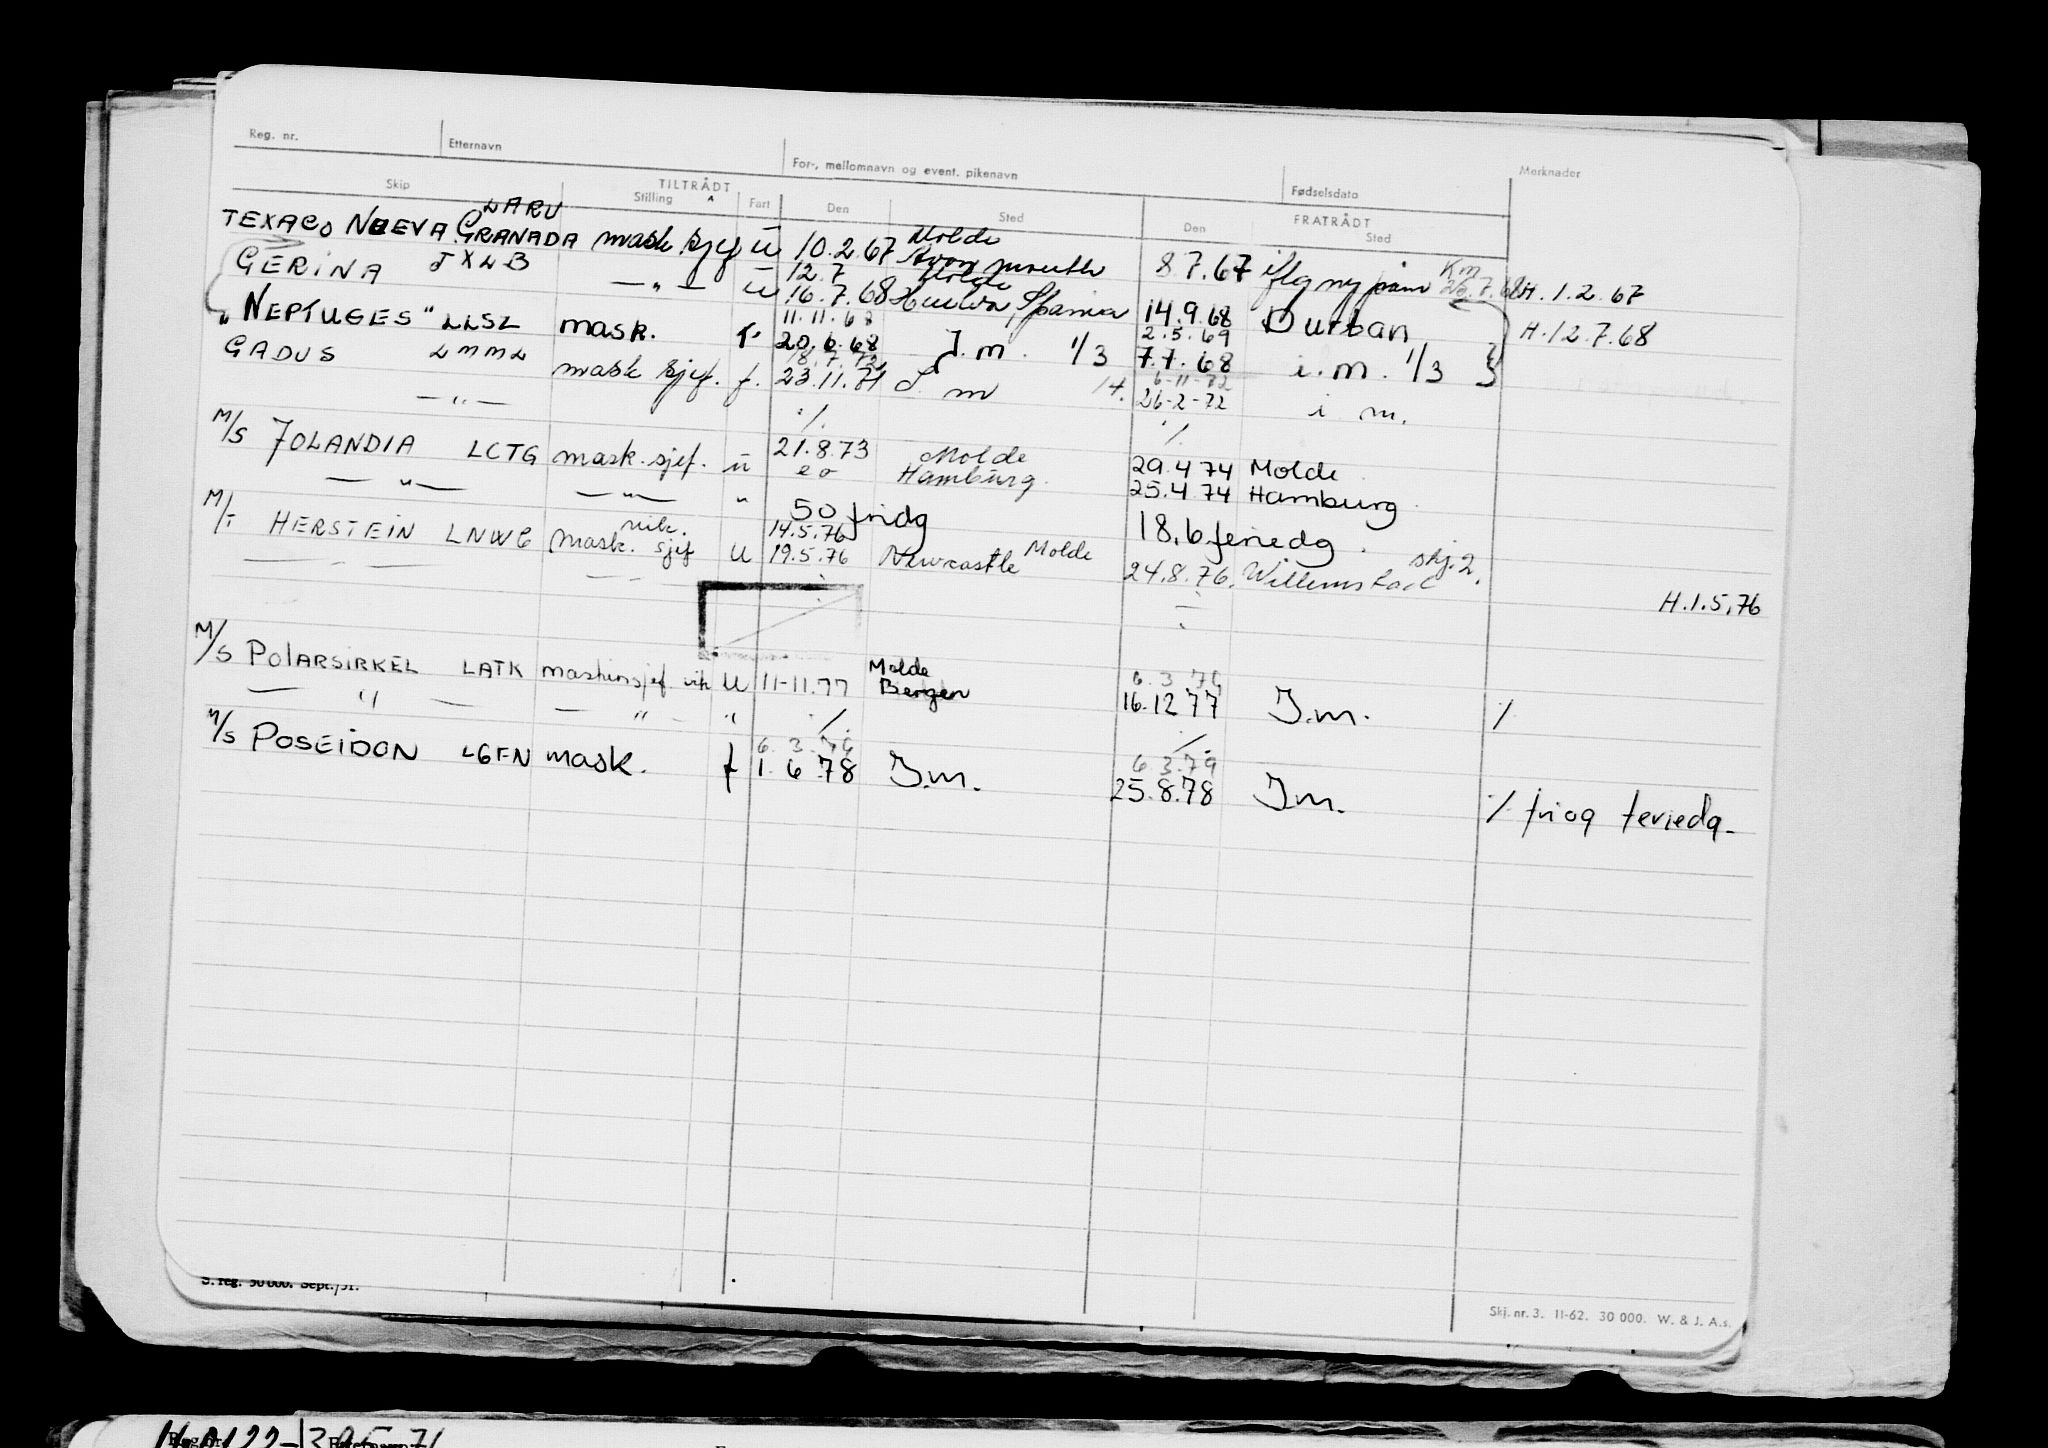 Reg. nr. Etternavn For-, mellomnavn og event. pikenavn Fødselsdato Merknader
TILTRÅDT FRATRÅDT
Skip Stilling Fart Den Sted Den Sted
LARU Molde
TEXACO NUEVA GRANADA mask sjef ū 10.2.67 Avonmouth 8.7.67 iflg ny påm H.1.2.67
12.7 Molde
GERINA JXLB — " — ū 16.7.68 Huelva, Spania 14.9.68 Durban H.12.7.68
11.11.68 2.5.69
"NEPTUGES" LLSL mask. f. 20.6.68 I.m. 1/3 7.7.68 i.m. 1/3
18.7.72 6-11-72
GADUS LMML mask sjef. f. 23.11.71 I m 26-2-72 i m.
— " — ./. ./.
M/S JOLANDIA LCTG mask. sjef. ū 21.8.73 Molde 29.4 74 Molde
— " — — " — " Hamburg 25.4 74 Hamburg
50 fridg 18,6 feriedg.
vik. 14.5.76 Molde skj. 2.
M/T HERSTEIN LNWC mask. sjef U 19.5.76 Newcastle 24.8.76. Willemstad
H.1.5.76
Molde
M/S POLARSIRKEL LATK maskinsjef vik U 11-11.77 Bergen 16.12 77 I.m. ./.
— " — — " — " ./. ./.
6.3.79 6.3.79
M/S POSEIDON LGFN mask. f 1.6.78 I.m. 25.8.78 I.m. ./. fri og feriedg.
S. reg. 50 000. Sept./51.
Skj. nr. 3. 11-62. 30 000. W. & J. A.s.